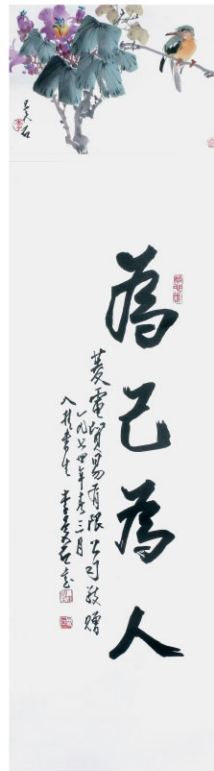 為己為人
菱電貿易有限公司敬贈
一九七四年春三月
八桂書生